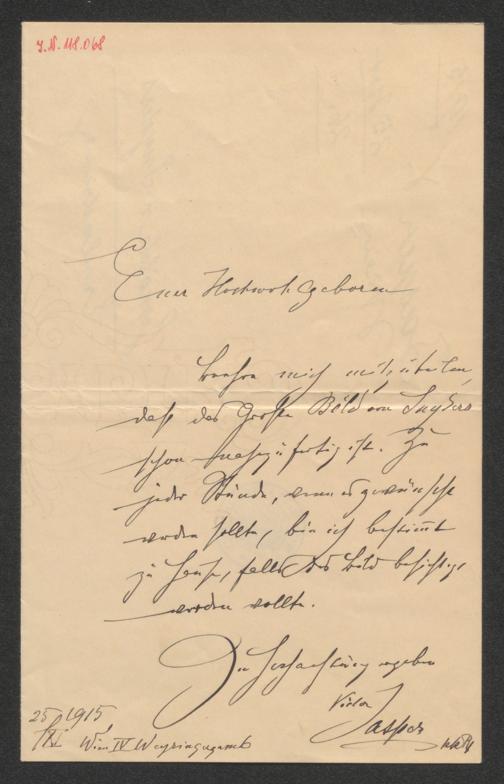 J.N. 118.068
Euer Hochwohlgeboren
beehre mich mitzuteilen,
daß das Große Bild von Snyders
schon nahezu fertig ist. Zu
jeder Stunde, wenn es gewünscht
werden sollte, bin ich bestimmt
zu Hause, falls das Bild besichtigt
werden wollte.
In Hochachtung ergeben
Victor
Jasper
25/XI 1915
Wien IV Weyringergasse